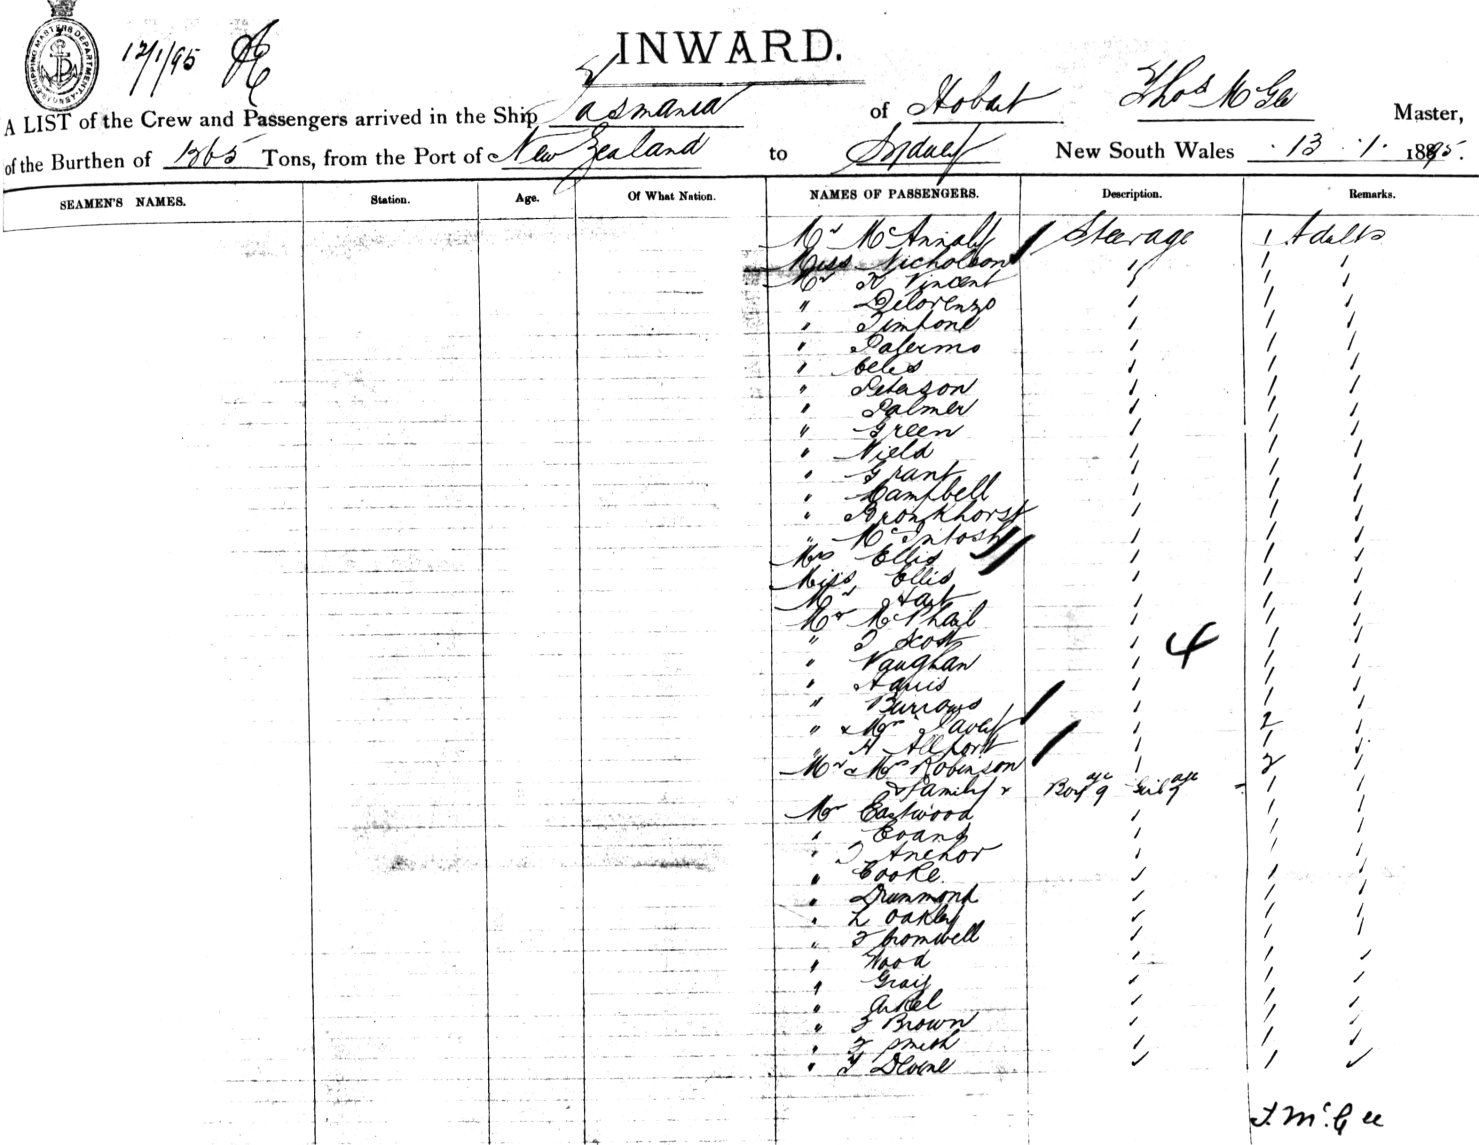 SHIPPING MASTERS DEPARTMENT
12/1/95
INWARD.
A LIST of the Crew and Passengers arrived in the Ship Tasmania of Hobart Thos McGee Master,
of the Burthen of 1365 Tons, from the Port of New Zealand to Sydney New South Wales 13 . 1 . 1895.
SEAMEN'S NAMES. Station. Age. Of What Nation. NAMES OF PASSENGERS. Description. Remarks.
Mr McAnnaly Steerage 1 Adults
Miss Nicholson " 1 "
Mr R Vincent " 1 "
" Delorenzo " 1 "
" Timpone " 1 "
" Palermo " 1 "
" " 1 "
" Peterson " 1 "
" Palmer " 1 "
" Green " 1 "
" Nield " 1 "
" Grant " 1 "
" Campbell " 1 "
" Bronkhorst " 1 "
" McIntosh " 1 "
Mrs Ellis " 1 "
Miss Ellis " 1 "
Mr Hart " 1 "
Mr McPhail " 1 "
" T Scott " 4 1 "
" Vaughan " 1 "
" Harris " 1 "
" Burrows " 1 "
" & Mrs Pavey " 2 "
" H Allport " 1 "
Mr & Mrs Robinson " 2 "
& Family Boy age 9 Girl age
Mr Eastwood " 1 "
" Evans " 1 "
" T Anchor " 1 "
" Cooke. " 1 "
" Drummond " 1 "
" L Oakley " 1 "
" F Cromwell " 1 "
" Wood " 1 "
" Gray " 1 "
" Arkel " 1 "
" F Brown " 1 "
" F Smith " 1 "
" F Devine " 1 "
T. McGee